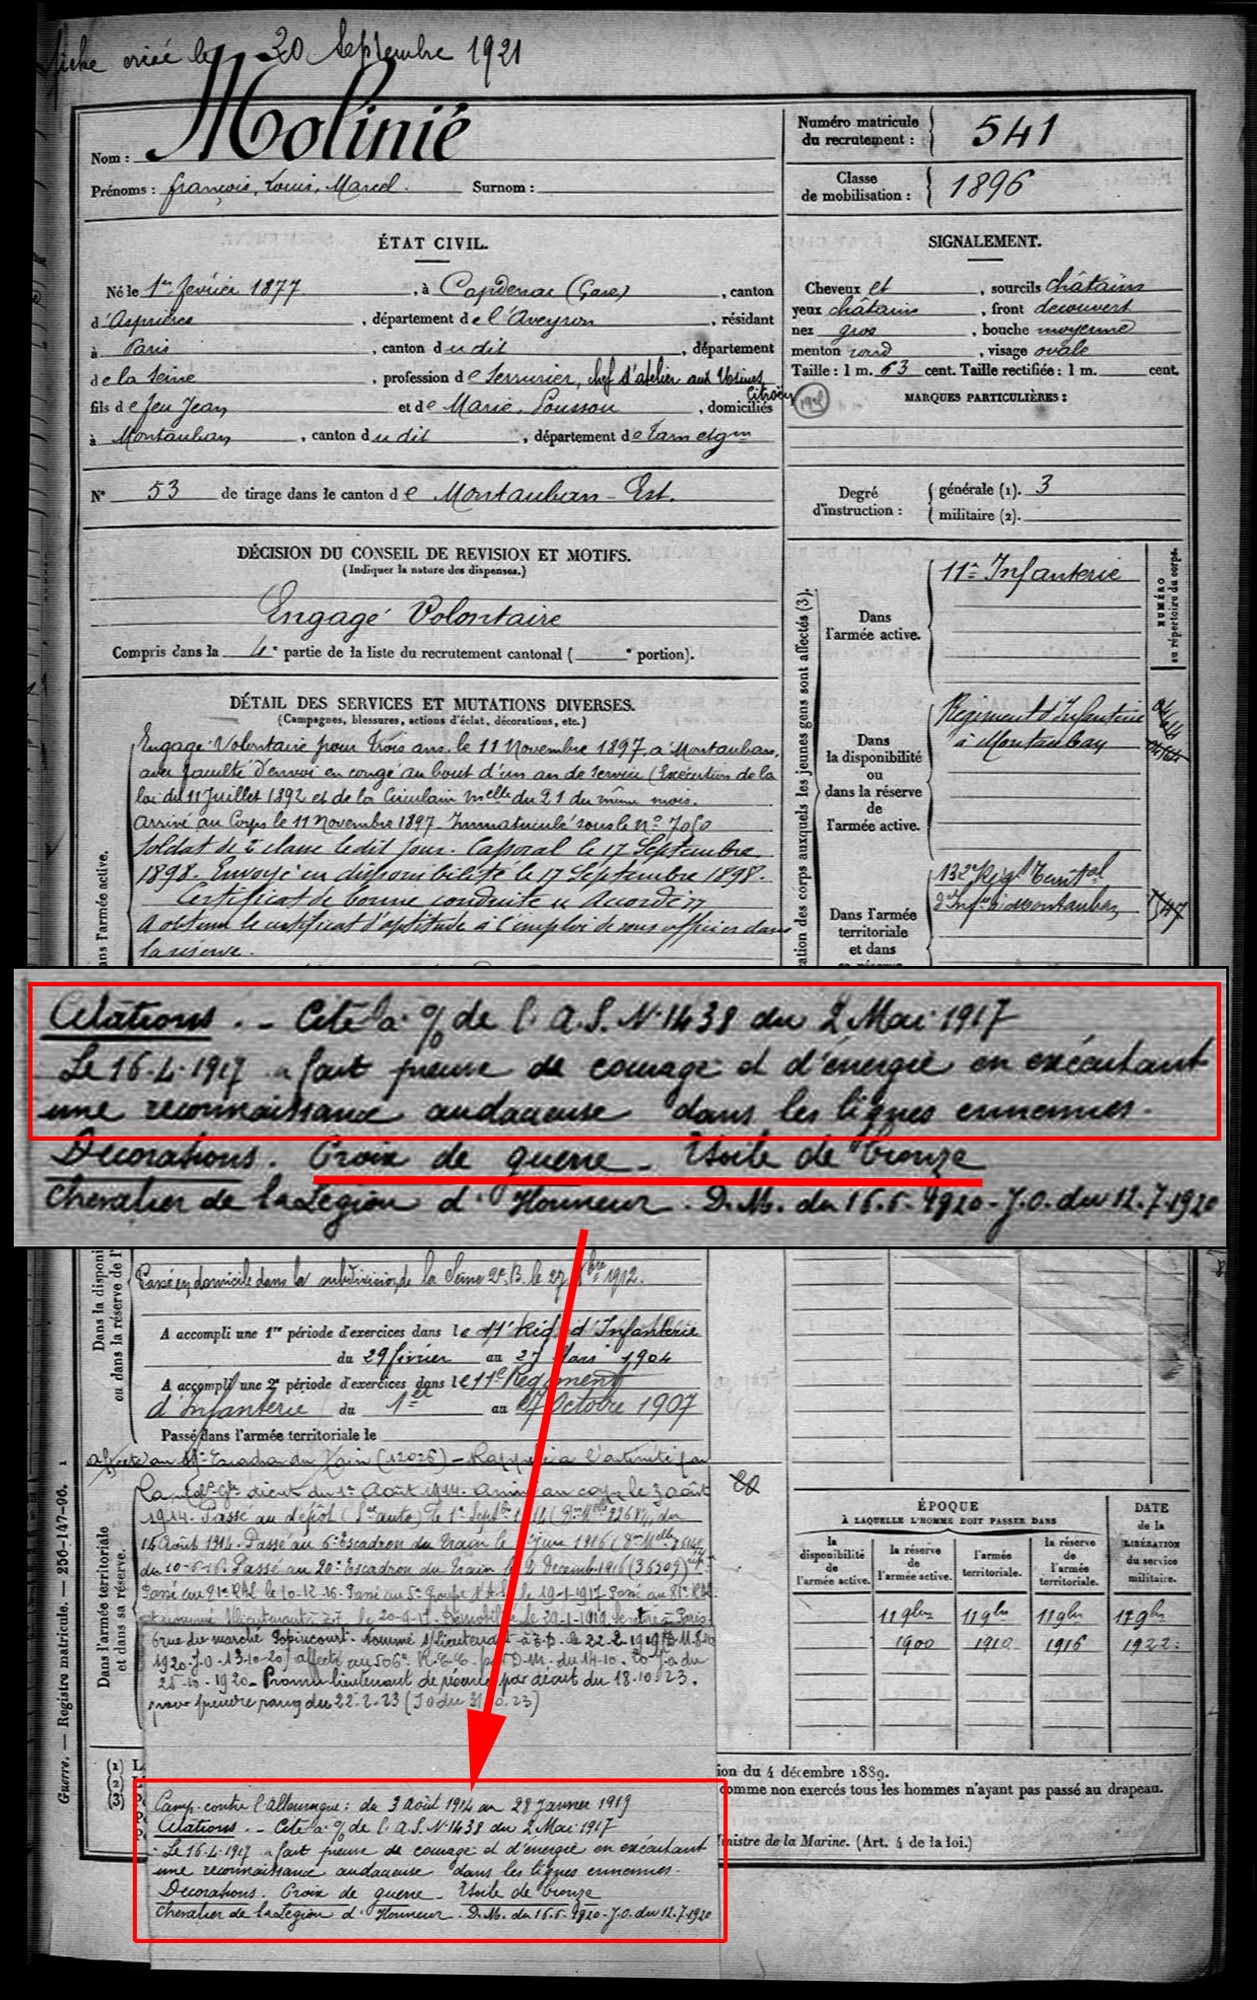 fiche créé le 20 Septembre 1921
Nom : Molinié
Prénoms : françois, Louis, Marcel. Surnom :
Numéro matricule du recrutement : 541
Classe de mobilisation : 1896
ÉTAT CIVIL.
Né le 1er février 1877, à Capdenac (Gare), canton
d'Asprières, département de l'Aveyron, résidant
à Paris, canton dudit, département
de la Seine, profession de Serrurier, chef d'atelier aux Usines Citroën
fils de feu Jean et de Marie, Loussou, domiciliés
à Montauban, canton dudit, département de Tarn et gne
N° 53 de tirage dans le canton de Montauban - Est.
SIGNALEMENT.
Cheveux et, sourcils châtains
yeux châtains, front découvert
nez gros, bouche moyenne
menton rond, visage ovale
Taille : 1 m. 63 cent. Taille rectifiée : 1 m. cent.
MARQUES PARTICULIÈRES :
Degré d'instruction : générale (1). 3
militaire (2).
DÉCISION DU CONSEIL DE REVISION ET MOTIFS.
(Indiquer la nature des dispenses.)
Engagé Volontaire
Compris dans la 4e partie de la liste du recrutement cantonal ( e portion).
DÉTAIL DES SERVICES ET MUTATIONS DIVERSES.
(Campagnes, blessures, actions d'éclat, décorations, etc.)
Engagé Volontaire pour trois ans le 11 Novembre 1897, à Montauban,
avec faculté d'envoi en congé au bout d'un an de service (Exécution de la
loi du 11 Juillet 1892 et de la Circulaire melle du 21 du même mois.
Arrivé au Corps le 11 Novembre 1897. Immatriculé sous le n° 7050
Soldat de 2e classe ledit jour. Caporal le 17 Septembre
1898. Envoyé en disponibilité le 17 Septembre 1898.
Certificat de bonne conduite "Accordé"
A obtenu le certificat d'aptitude à l'emploi de sous officier dans
la réserve.
ans l'armée active.
ation des corps auxquels les jeunes gens sont affectés (3).
NUMÉRO
au répertoire du corps.
Dans l'armée active.
11e Infanterie
Dans la disponibilité ou dans la réserve de l'armée active.
Régiment d'Infanterie
à Montauban
Dans l'armée territoriale et dans
132e Régt Territal
d'Infie à Montauban
Citations. - Cité à l'o/ de l'A.S. N° 1438 du 2 Mai 1917
Le 16.4.1917 a fait preuve de courage et d'énergie en exécutant
une reconnaissance audacieuse dans les lignes ennemies.
Décorations. Croix de guerre - Etoile de bronze
Chevalier de la Légion d'Honneur. D.M. du 16.6.1920 - J.O. du 12.7.1920
Dans la disponi
ou dans la réserve de l'
Passé en domicile dans la subdivision de la Seine 2e B. le 27 1912.
A accompli une 1re période d'exercices dans le 11e Régt d'Infanterie
du 29 février au 27 Mars 1904
A accompli une 2e période d'exercices dans le 11e Régiment
d'Infanterie du 1er au 27 Octobre 1907
Passé dans l'armée territoriale le
Dans l'armée territoriale
et dans sa réserve.
Escadron du Train Rappelé à l'activité par
décret du 1er Août 1914. Arrivé au corps le 3 août
1914. Passé au dépôt le 1er Sept
14 Août 1914. Passé au Escadron du Train le Juin 1916
du 10-6-16. Passé au 20e Escadron du Train le Décemb. 1916 (36309)
Passé au 81e RAL le 10-12-16. Passé au 5e Groupe d'A.S. le 19-1-1917. Passé au 81e RAL
le 20-9-17. Démobilisé le 29-1-1919 Paris
6 rue du marché Popincourt. Nommé s/lieutenant à T.D. le 22.2.1919
1920. J.O. 13-10-20) affecté au 506e R.C.C. par D.M. du 14-10-20
25-10-1920. Promu lieutenant de réserve par décret du 18.10.23.
pour prendre rang du 22.2.23 (J.O du 23)
ÉPOQUE
À LAQUELLE L'HOMME DOIT PASSER DANS
la disponibilité de l'armée active.
la réserve de l'armée active.
l'armée territoriale.
la réserve de l'armée territoriale.
DATE de la LIBÉRATION du service militaire.
11 9bre 11 9bre 11 9bre 11 9bre
1900 1910 1916 1922
Guerre. — Registre matricule. — 256-147-96.
(1)
(2)
(3)
ion du 4 décembre 1889.
comme non exercés tous les hommes n'ayant pas passé au drapeau.
inistre de la Marine. (Art. 4 de la loi.)
Camp. contre l'Allemagne : du 3 Août 1914 au 28 Janvier 1919
Citations. - Cité à l'o/ de l'A.S. N° 1438 du 2 Mai 1917
Le 16.4.1917 a fait preuve de courage et d'énergie en exécutant
une reconnaissance audacieuse dans les lignes ennemies.
Décorations. Croix de guerre - Etoile de bronze
Chevalier de la Légion d'Honneur. D.M. du 16.6.1920 - J.O. du 12.7.1920